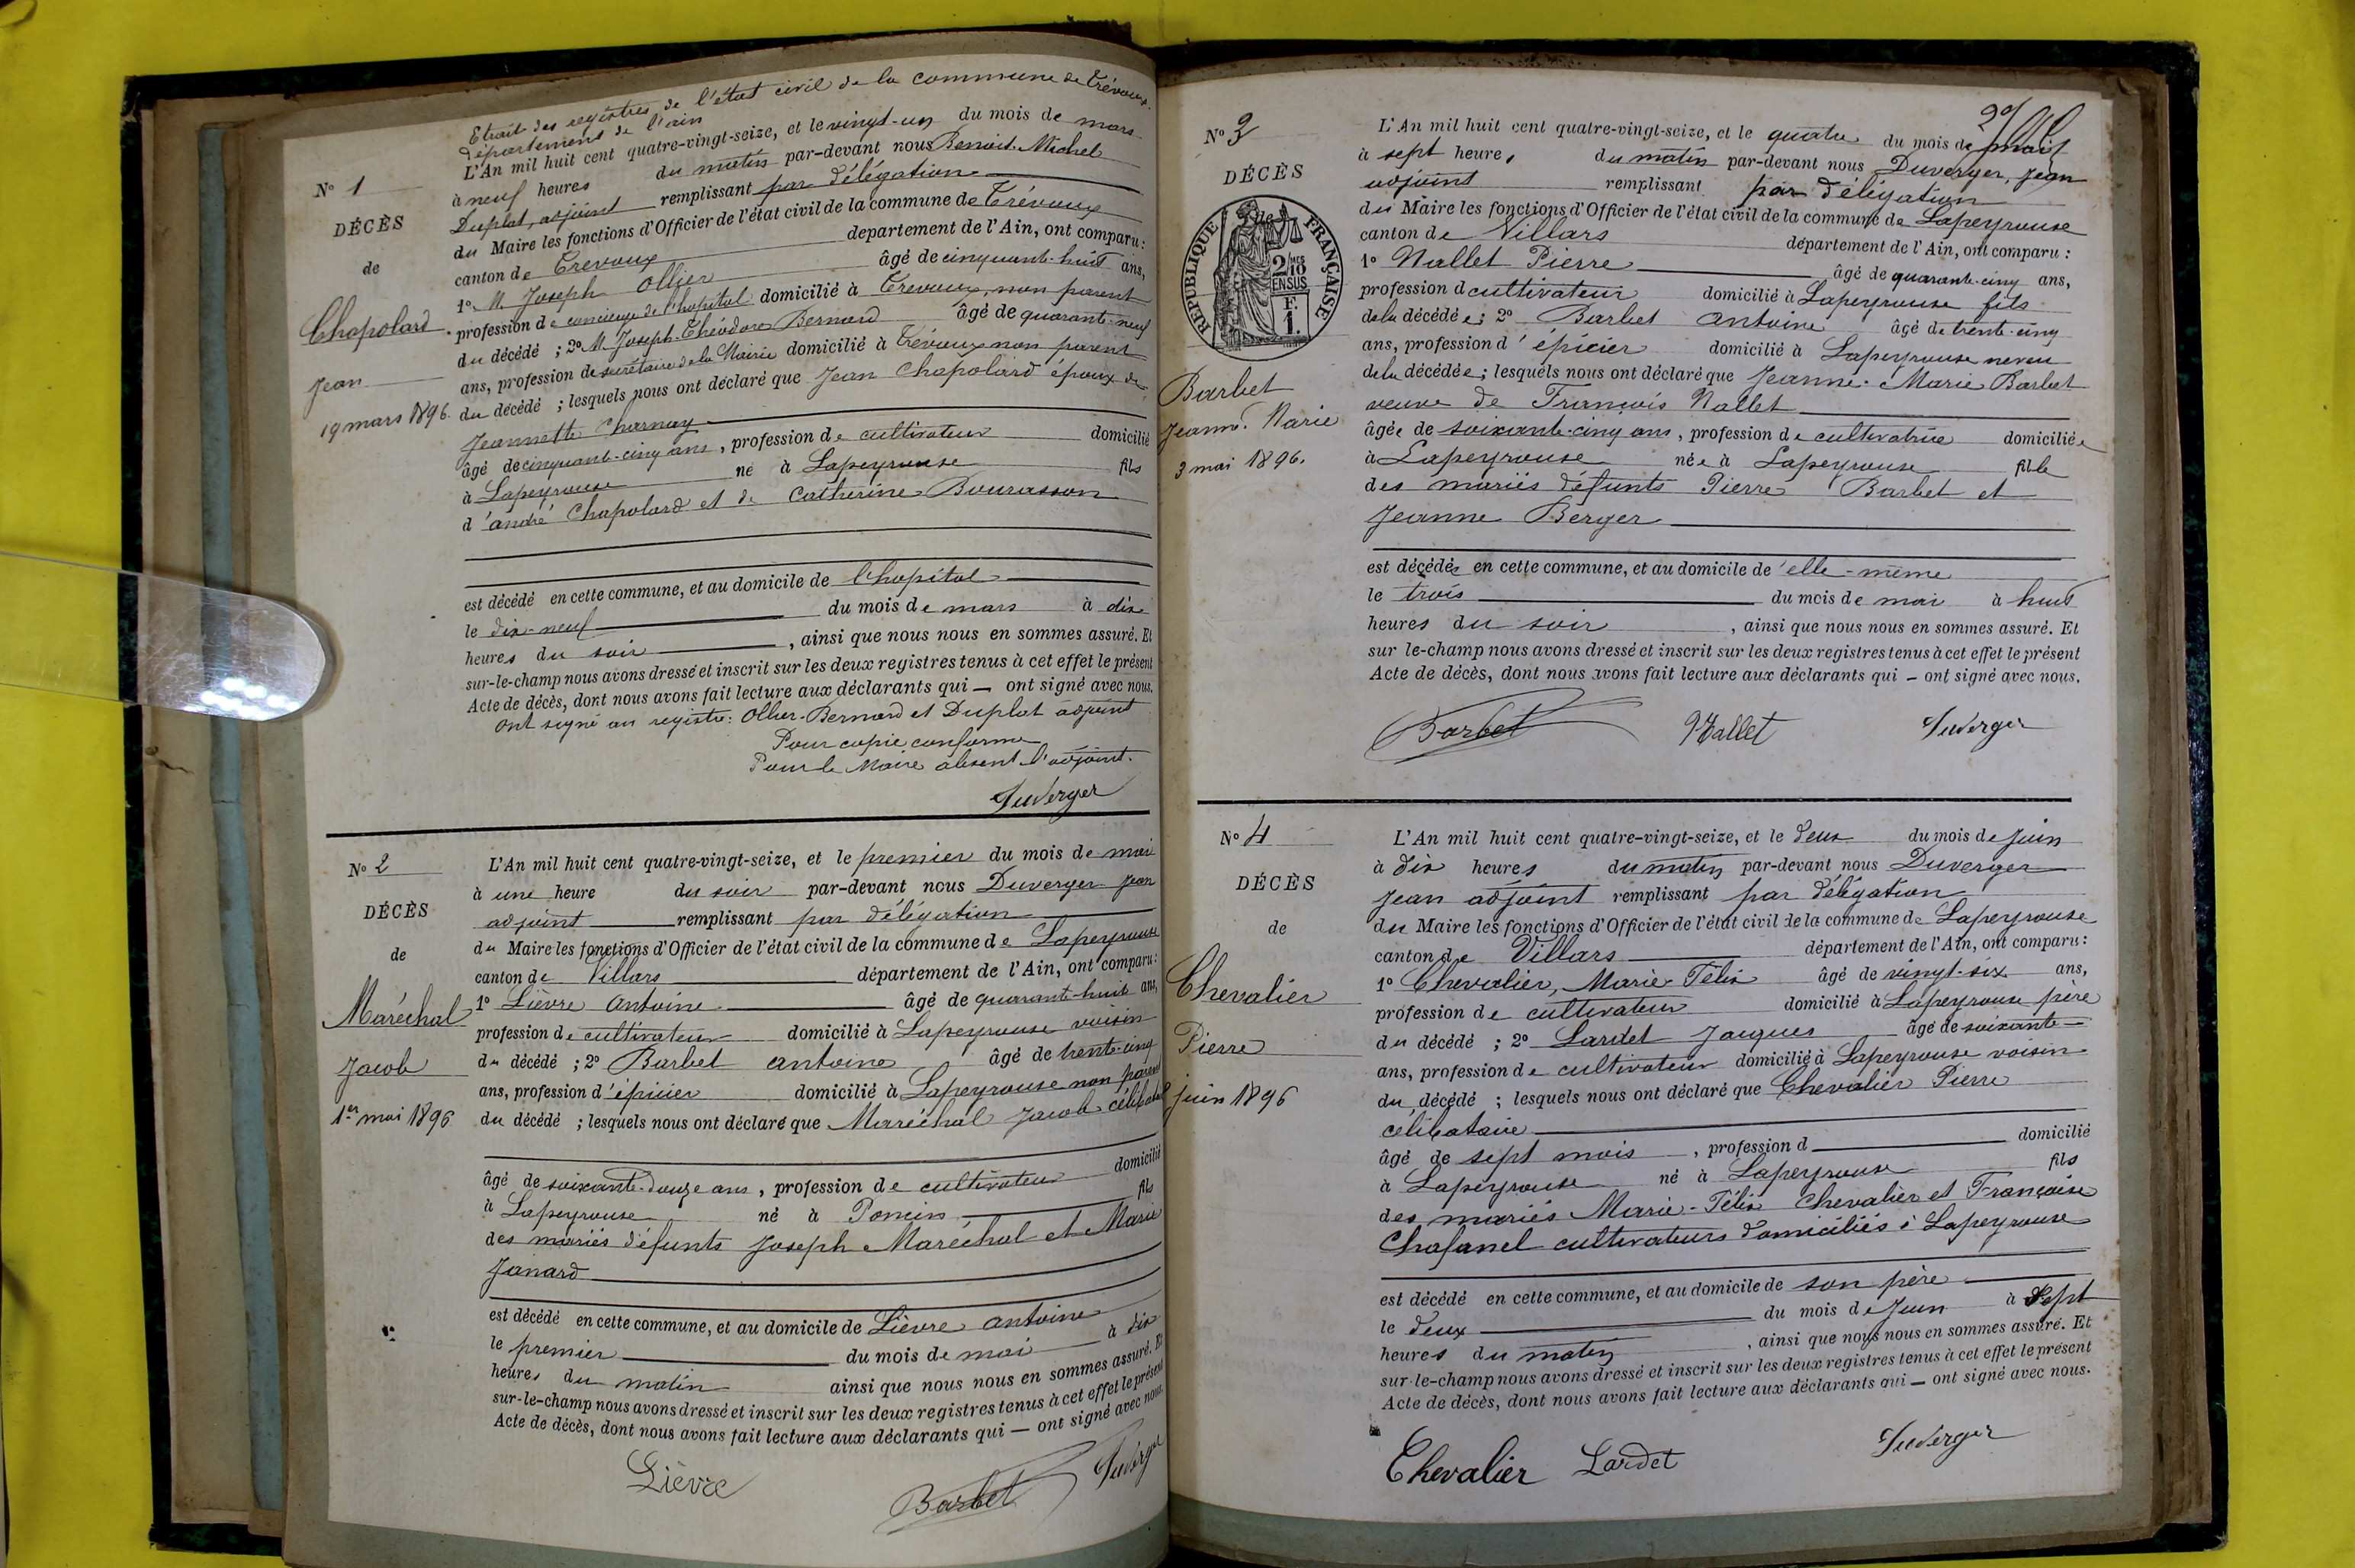 Etrait des registres de l'état civil de la commune de Trévoux.
département de l'ain
N° 1
DÉCÈS
de
Chapolard
Jean
19 mars 1896.
L'An mil huit cent quatre-vingt-seize, et le vingt-un du mois de mars
à neuf heures du matin par-devant nous Benoit-Michel
Duplat, adjoint remplissant par délégation
du Maire les fonctions d'Officier de l'état civil de la commune de Trévoux
canton de Trevoux département de l'Ain, ont comparu :
1° M. Joseph Ollier âgé de cinquante-huit ans,
profession de concierge de l'hopital domicilié à Trevoux, non parent
du décédé ; 2° M. Joseph-Théodore Bernard âgé de quarante-neuf
ans, profession de secrétaire de la Mairie domicilié à Trévoux non parent
du décédé ; lesquels nous ont déclaré que Jean Chapolard époux de
Jeannette Charnay
âgé de cinquante-cinq ans, profession de cultivateur domicilié
à Lapeyrouse né à Lapeyrouse fils
d'andré Chapolard et de Catherine Bourasson
est décédé en cette commune, et au domicile de l'hopital
le dix-neuf du mois de mars à dix
heures du soir, ainsi que nous nous en sommes assuré. Et
sur-le-champ nous avons dressé et inscrit sur les deux registres tenus à cet effet le présent
Acte de décès, dont nous avons fait lecture aux déclarants qui — ont signé avec nous.
ont signé au registre : Ollier-Bernard et Duplat adjoint
Pour copie conforme
Pour le Maire absent l'adjoint.
Duverger
N° 2
DÉCÈS
de
Maréchal
Jacob
1er mai 1896
L'An mil huit cent quatre-vingt-seize, et le premier du mois de mai
à une heure du soir par-devant nous Duverger Jean
adjoint remplissant par délégation
du Maire les fonctions d'Officier de l'état civil de la commune de Lapeyrouse
canton de Villars département de l'Ain, ont comparu :
1° Lièvre Antoine âgé de quarante-huit ans,
profession de cultivateur domicilié à Lapeyrouse voisin
du décédé ; 2° Barbet antoine âgé de trente-cinq
ans, profession d'épicier domicilié à Lapeyrouse non parent
du décédé ; lesquels nous ont déclaré que Maréchal Jacob célibataire
âgé de soixante-douze ans, profession de cultivateur domicilié
à Lapeyrouse né à Poncin fils
des mariés défunts Joseph Maréchal et Marie
Janard
est décédé en cette commune, et au domicile de Lièvre antoine
le premier du mois de mai à dix
heures du matin ainsi que nous nous en sommes assuré. Et
sur-le-champ nous avons dressé et inscrit sur les deux registres tenus à cet effet le présent
Acte de décès, dont nous avons fait lecture aux déclarants qui — ont signé avec nous.
Lièvre Barbet Duverger
N° 3
DÉCÈS
de
RÉPUBLIQUE FRANÇAISE
2/10 EN SUS
F.
1.
Barbet
Jeanne Marie
3 mai 1896.
L'An mil huit cent quatre-vingt-seize, et le quatre du mois de mai
à sept heures du matin par-devant nous Duverger, Jean
adjoint remplissant par délégation
du Maire les fonctions d'Officier de l'état civil de la commune de Lapeyrouse
canton de Villars département de l'Ain, ont comparu :
1° Nallet Pierre âgé de quarante-cinq ans,
profession d cultivateur domicilié à Lapeyrouse fils
de la décédée ; 2° Barbet Antoine âgé de trente-cinq
ans, profession d'épicier domicilié à Lapeyrouse neveu
de la décédée ; lesquels nous ont déclaré que Jeanne-Marie Barbet
veuve de François Nallet
âgée de soixante-cinq ans, profession de cultivatrice domiciliée
à Lapeyrouse née à Lapeyrouse fille
des mariés défunts Pierre Barbet et
Jeanne Berger
est décédée en cette commune, et au domicile d'elle-même
le trois du mois de mai à huit
heures du soir, ainsi que nous nous en sommes assuré. Et
sur le-champ nous avons dressé et inscrit sur les deux registres tenus à cet effet le présent
Acte de décès, dont nous avons fait lecture aux déclarants qui — ont signé avec nous.
Barbet Nallet Duverger
N° 4
DÉCÈS
de
Chevalier
Pierre
juin 1896
L'An mil huit cent quatre-vingt-seize, et le deux du mois de Juin
à dix heures du matin par-devant nous Duverger
Jean adjoint remplissant par délégation
du Maire les fonctions d'Officier de l'état civil de la commune de Lapeyrouse
canton de Villars département de l'Ain, ont comparu :
1° Chevalier, Marie-Félix âgé de vingt-six ans,
profession de cultivateur domicilié à Lapeyrouse père
du décédé ; 2° Lardet Jacques âgé de soixante
ans, profession de cultivateur domicilié à Lapeyrouse voisin
du décédé ; lesquels nous ont déclaré que Chevalier Pierre
célibataire
âgé de sept mois, profession d domicilié
à Lapeyrouse né à Lapeyrouse fils
des mariés Marie-Félix Chevalier et Françoise
Chafanel cultivateurs domiciliés à Lapeyrouse
est décédé en cette commune, et au domicile de son père
le deux du mois de Juin à Sept
heures du matin, ainsi que nous nous en sommes assuré. Et
sur-le-champ nous avons dressé et inscrit sur les deux registres tenus à cet effet le présent
Acte de décès, dont nous avons fait lecture aux déclarants qui — ont signé avec nous.
Chevalier Lardet Duverger